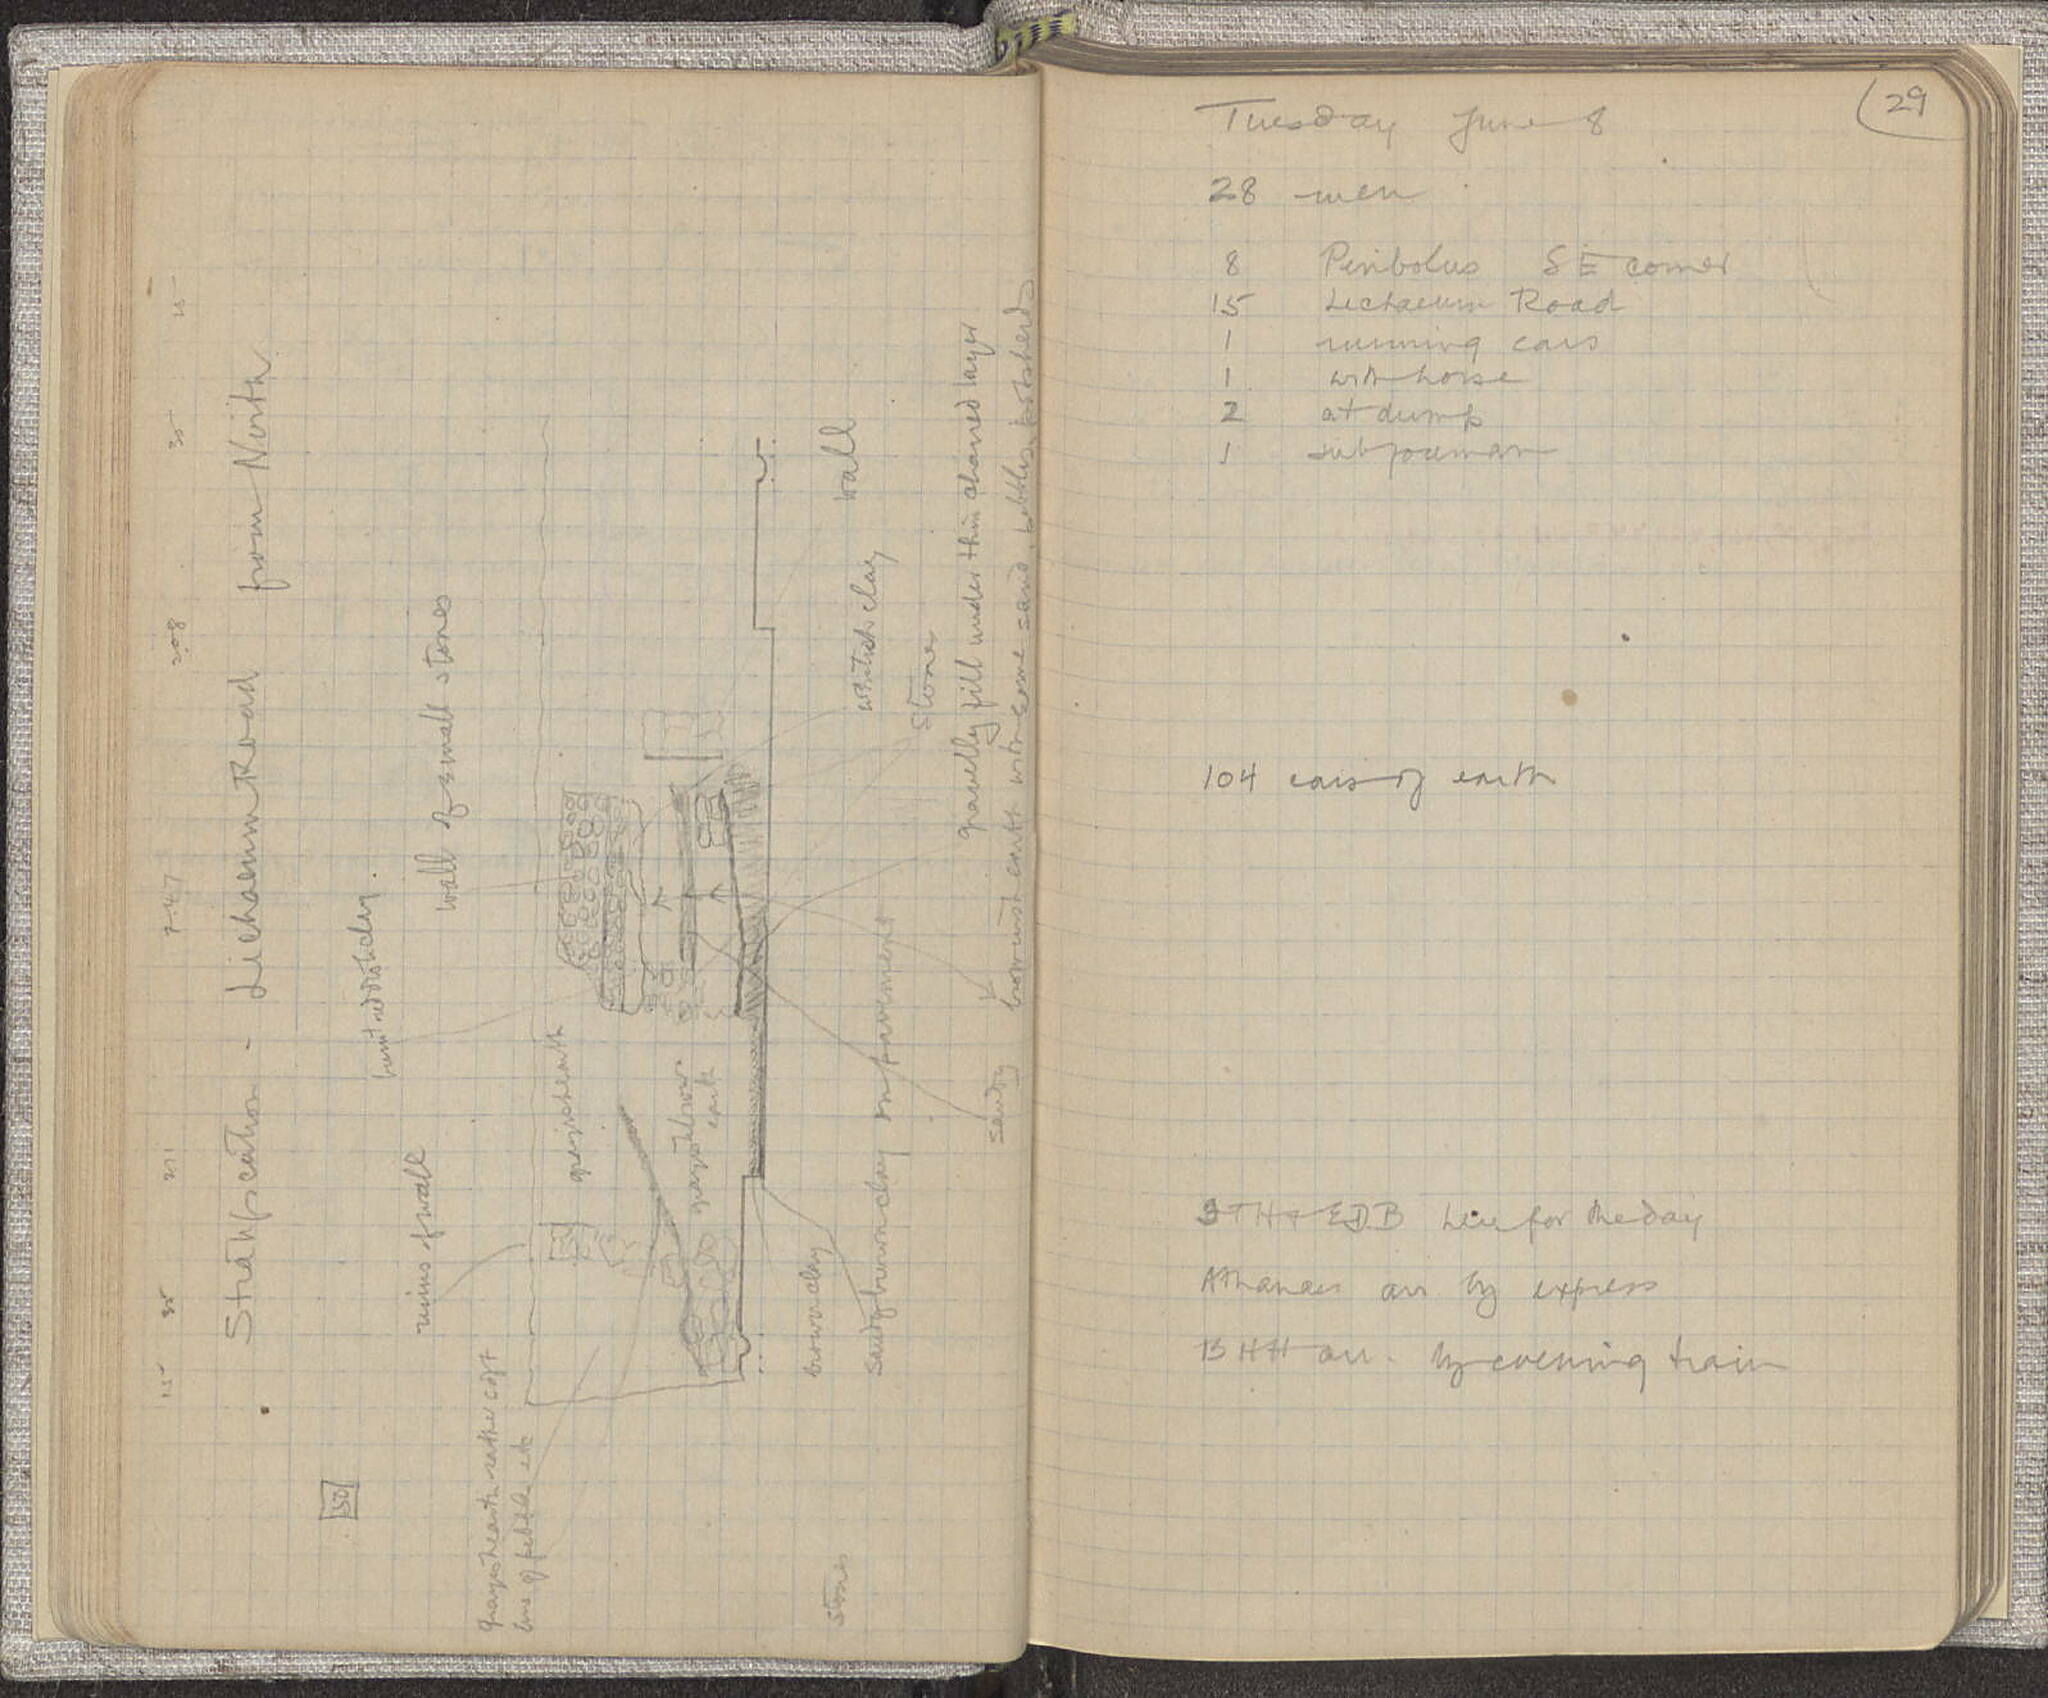 Stratification - Lechaeum Road from North
15 35 271 7.47 2.08 35 15
50
burnt reddish clay.
ruins of wall
wall of small stones
grayish earth rather soft
line of pebbles etc
grayish earth
grayish brown
earth
brown clay
wall
Sandy brown clay on pavement
whitish clay
stones
stones
gravelly fill under thin charred layer
sandy
brownish earth with some sand, pebbles, potsherds
29
Tuesday June 8
28 men
8 Peribolus SE corner
15 Lechaeum Road
1 running cars
1 with horse
2 at dump
1 sub foreman
104 cars of earth
ITH + EDB here for the day
Athanases arr by express
BHH arr. by evening train